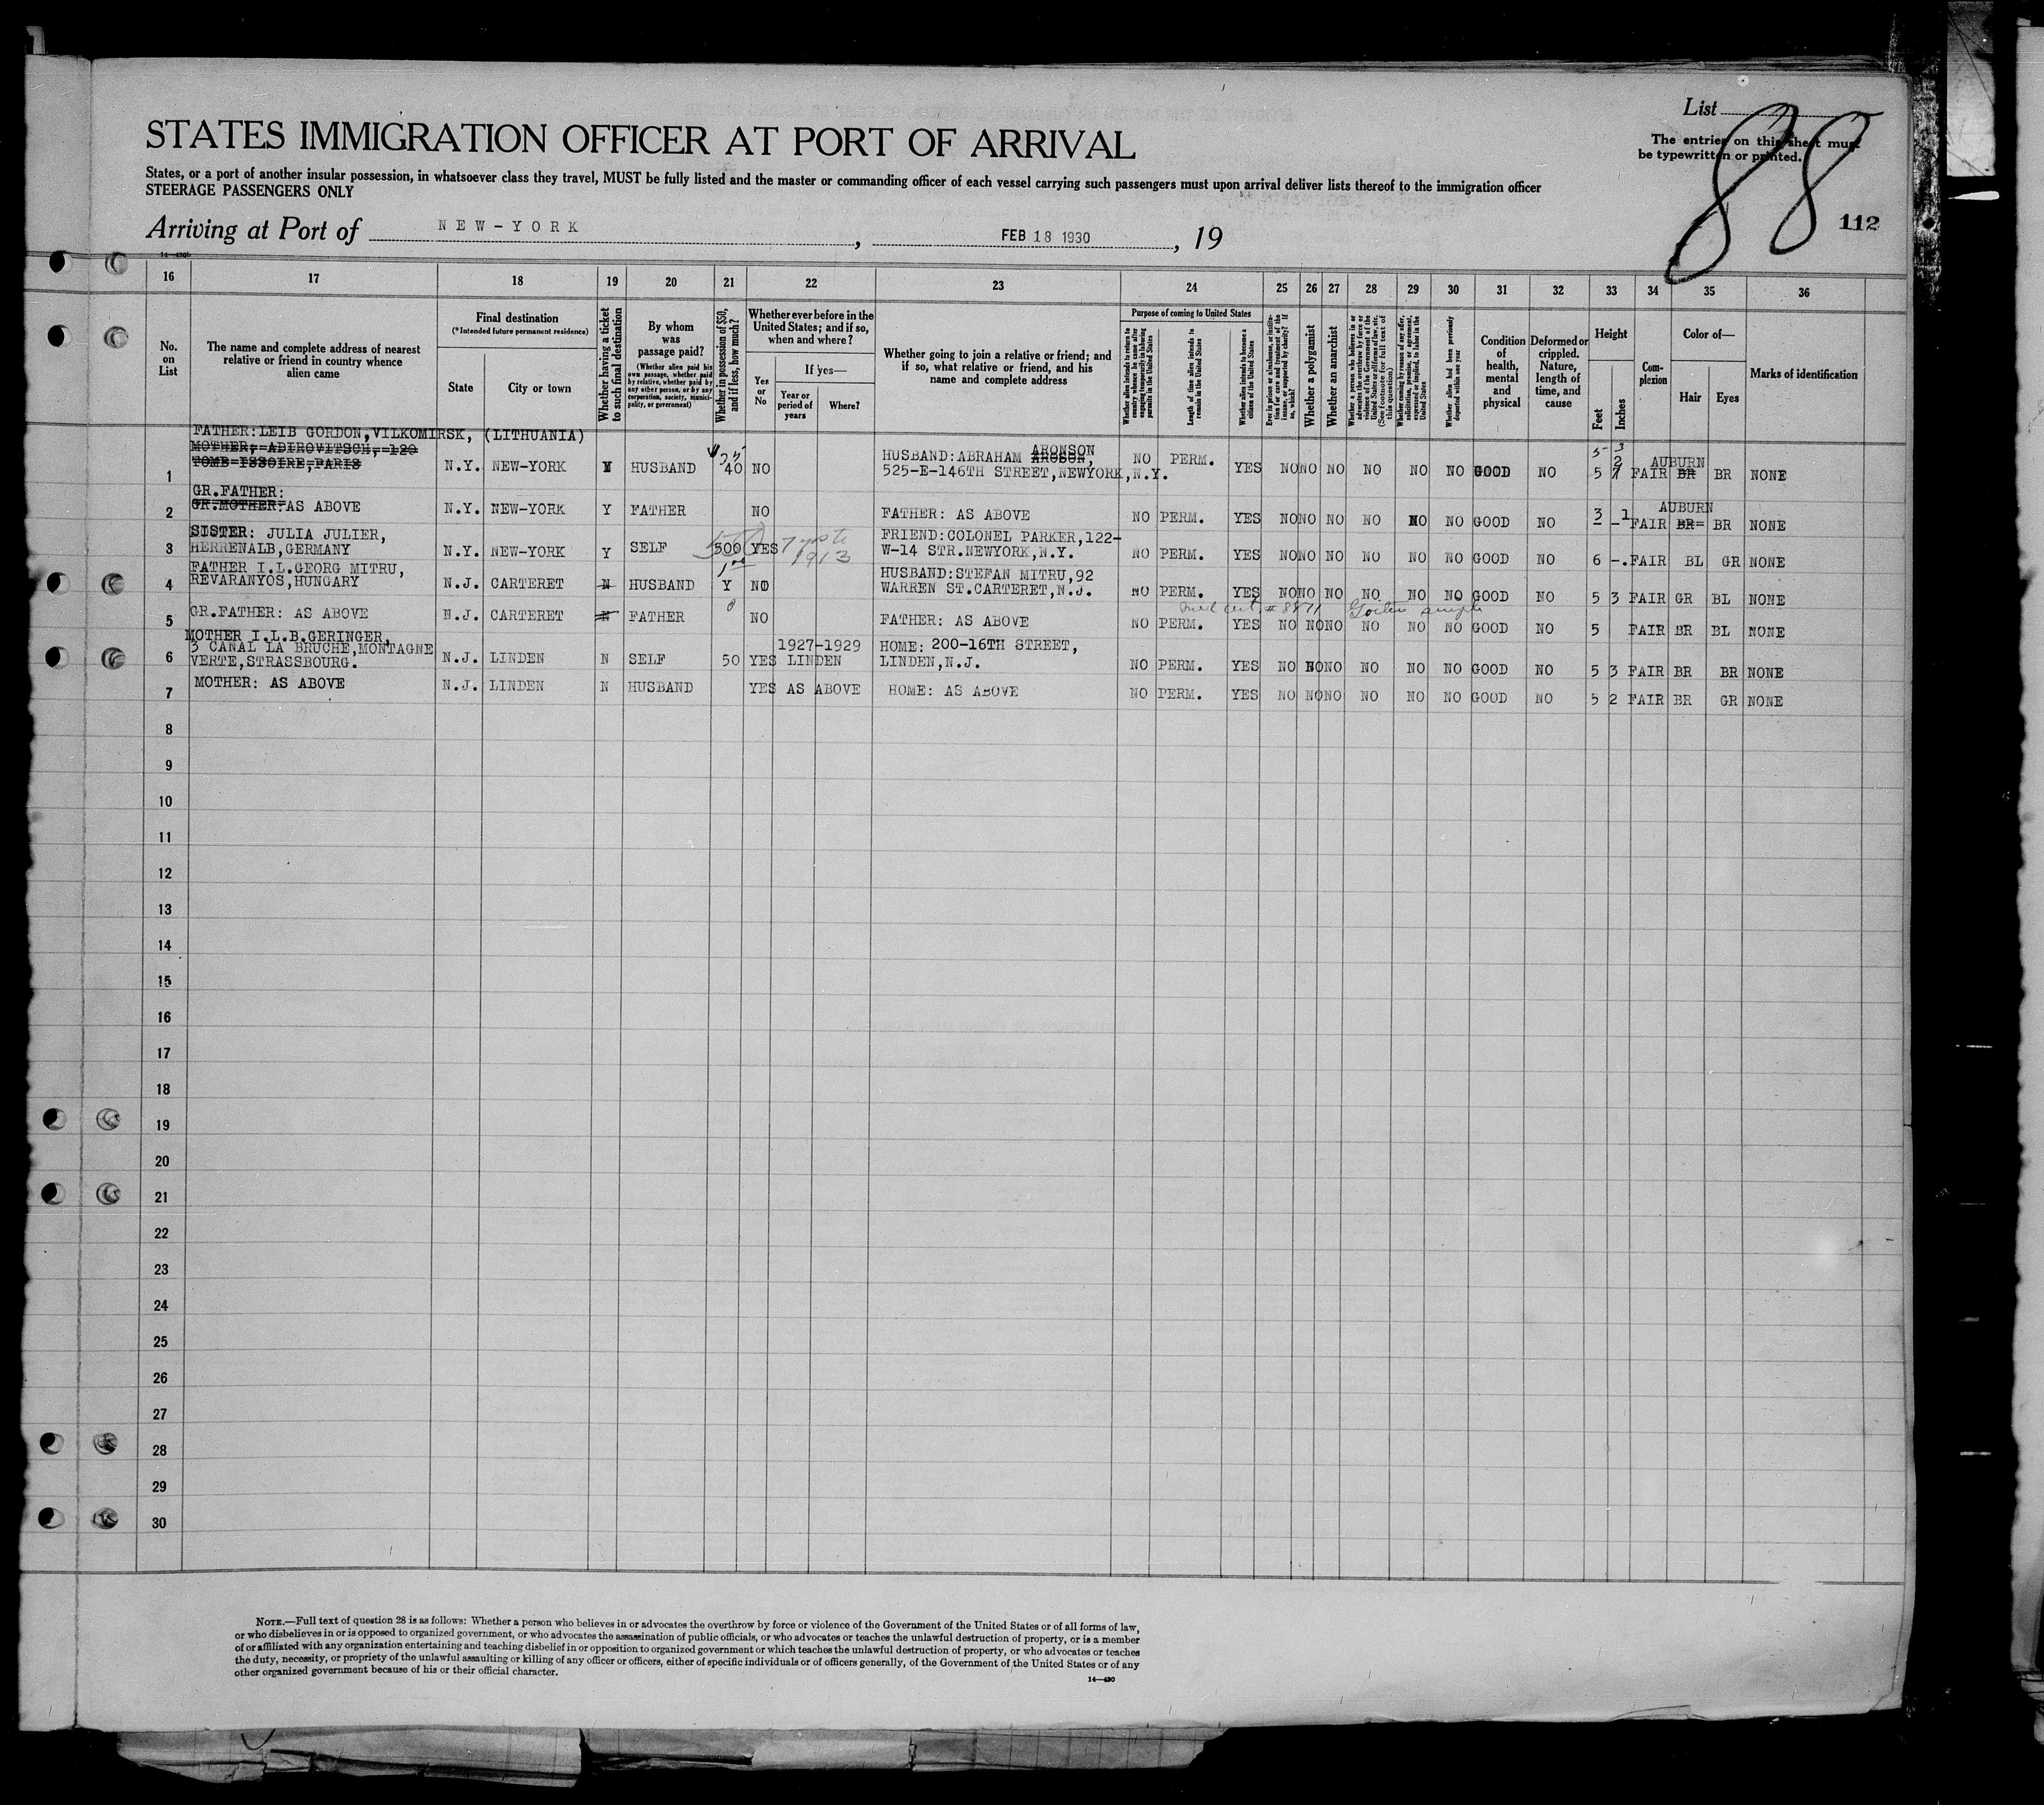 List
88
The entries on this sheet must
be typewritten or printed.
112
STATES IMMIGRATION OFFICER AT PORT OF ARRIVAL
States, or a port of another insular possession, in whatsoever class they travel, MUST be fully listed and the master or commanding officer of each vessel carrying such passengers must upon arrival deliver lists thereof to the immigration officer
STEERAGE PASSENGERS ONLY
Arriving at Port of NEW-YORK, FEB 18 1930, 19
14—430b
16 17 18 19 20 21 22 23 24 25 26 27 28 29 30 31 32 33 34 35 36
No. on List
The name and complete address of nearest relative or friend in country whence alien came
Final destination
(*Intended future permanent residence)
State
City or town
Whether having a ticket to such final destination
By whom was passage paid?
(Whether alien paid his own passage, whether paid by relative, whether paid by any other person, or by any corporation, society, municipality, or government)
Whether in possession of $50, and if less, how much?
Whether ever before in the United States; and if so, when and where?
Yes or No
If yes—
Year or period of years
Where?
Whether going to join a relative or friend; and if so, what relative or friend, and his name and complete address
Purpose of coming to United States
Whether alien intends to return to country whence he came after engaging temporarily in laboring pursuits in the United States
Length of time alien intends to remain in the United States
Whether alien intends to become a citizen of the United States
Ever in prison or almshouse, or institution for care and treatment of the insane, or supported by charity? If so, which?
Whether a polygamist
Whether an anarchist
Whether a person who believes in or advocates the overthrow by force or violence of the Government of the United States or all forms of law, etc. (See footnote for full text of this question)
Whether coming by reason of any offer, solicitation, promise, or agreement, expressed or implied, to labor in the United States
Whether alien had been previously deported within one year
Condition of health, mental and physical
Deformed or crippled. Nature, length of time, and cause
Height
Feet
Inches
Complexion
Color of—
Hair
Eyes
Marks of identification
FATHER:LEIB GORDON,VILKOMIRSK, (LITHUANIA)
MOTHER: ADIROVITSCH, 120
TOMB ISSOIRE,PARIS
1 N.Y. NEW-YORK HUSBAND 40 NO HUSBAND:ABRAHAM ARONSON,
525-E-146TH STREET,NEWYORK,N.Y. NO PERM. YES NO NO NO NO NO NO GOOD NO 5 FAIR BR AUBURN BR NONE
GR.FATHER:
2 GR.MOTHER: AS ABOVE N.Y. NEW-YORK Y FATHER NO FATHER: AS ABOVE NO PERM. YES NO NO NO NO NO NO GOOD NO 3 -1 FAIR BR AUBURN BR NONE
SISTER: JULIA JULIER,
3 HERRENALB,GERMANY N.Y. NEW-YORK Y SELF 500 YES 1913 FRIEND:COLONEL PARKER,122-
W-14 STR.NEWYORK,N.Y. NO PERM. YES NO NO NO NO NO NO GOOD NO 6 -. FAIR BL GR NONE
FATHER I.L.GEORG MITRU,
4 REVARANYOS,HUNGARY N.J. CARTERET N HUSBAND Y NO HUSBAND:STEFAN MITRU,92
WARREN ST.CARTERET,N.J. NO PERM. YES NO NO NO NO NO NO GOOD NO 5 3 FAIR GR BL NONE
5 GR.FATHER: AS ABOVE N.J. CARTERET N FATHER NO FATHER: AS ABOVE NO PERM. YES NO NO NO NO NO NO GOOD NO 5 FAIR BR BL NONE
MOTHER I.L.B.GERINGER,
3 CANAL LA BRUCHE,MONTAGNE
6 VERTE,STRASSBOURG. N.J. LINDEN N SELF 50 YES 1927-1929 LINDEN HOME: 200-16TH STREET,
LINDEN,N.J. NO PERM. YES NO NO NO NO NO NO GOOD NO 5 3 FAIR BR BR NONE
7 MOTHER: AS ABOVE N.J. LINDEN N HUSBAND YES AS ABOVE HOME: AS ABOVE NO PERM. YES NO NO NO NO NO NO GOOD NO 5 2 FAIR BR GR NONE
8
9
10
11
12
13
14
15
16
17
18
19
20
21
22
23
24
25
26
27
28
29
30
NOTE.—Full text of question 28 is as follows: Whether a person who believes in or advocates the overthrow by force or violence of the Government of the United States or of all forms of law,
or who disbelieves in or is opposed to organized government, or who advocates the assassination of public officials, or who advocates or teaches the unlawful destruction of property, or is a member
of or affiliated with any organization entertaining and teaching disbelief in or opposition to organized government or which teaches the unlawful destruction of property, or who advocates or teaches
the duty, necessity, or propriety of the unlawful assaulting or killing of any officer or officers, either of specific individuals or of officers generally, of the Government of the United States or of any
other organized government because of his or their official character.
14—430